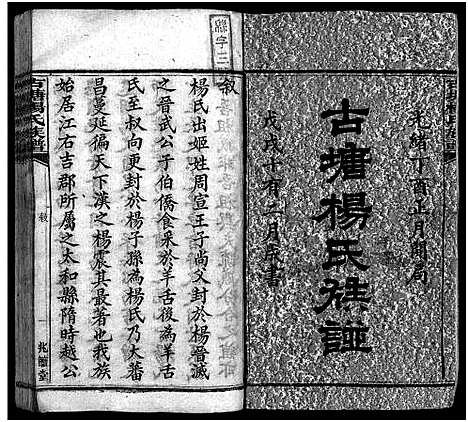 光緒丁酉正月開局
古塘楊氏族譜
戊戌十有二月成書
綿字三
敘
楊氏出姬姓周宣王子尚父封於楊晉滅
之晉武公子伯僑食采於羊舌後為羊舌
氏至叔向更封於楊子孫為楊氏乃大蕃
昌蔓延徧天下漢之楊震其最著也我族
始居江右吉郡所屬之太和縣隋時越公
古塘楊氏族譜
敘
一